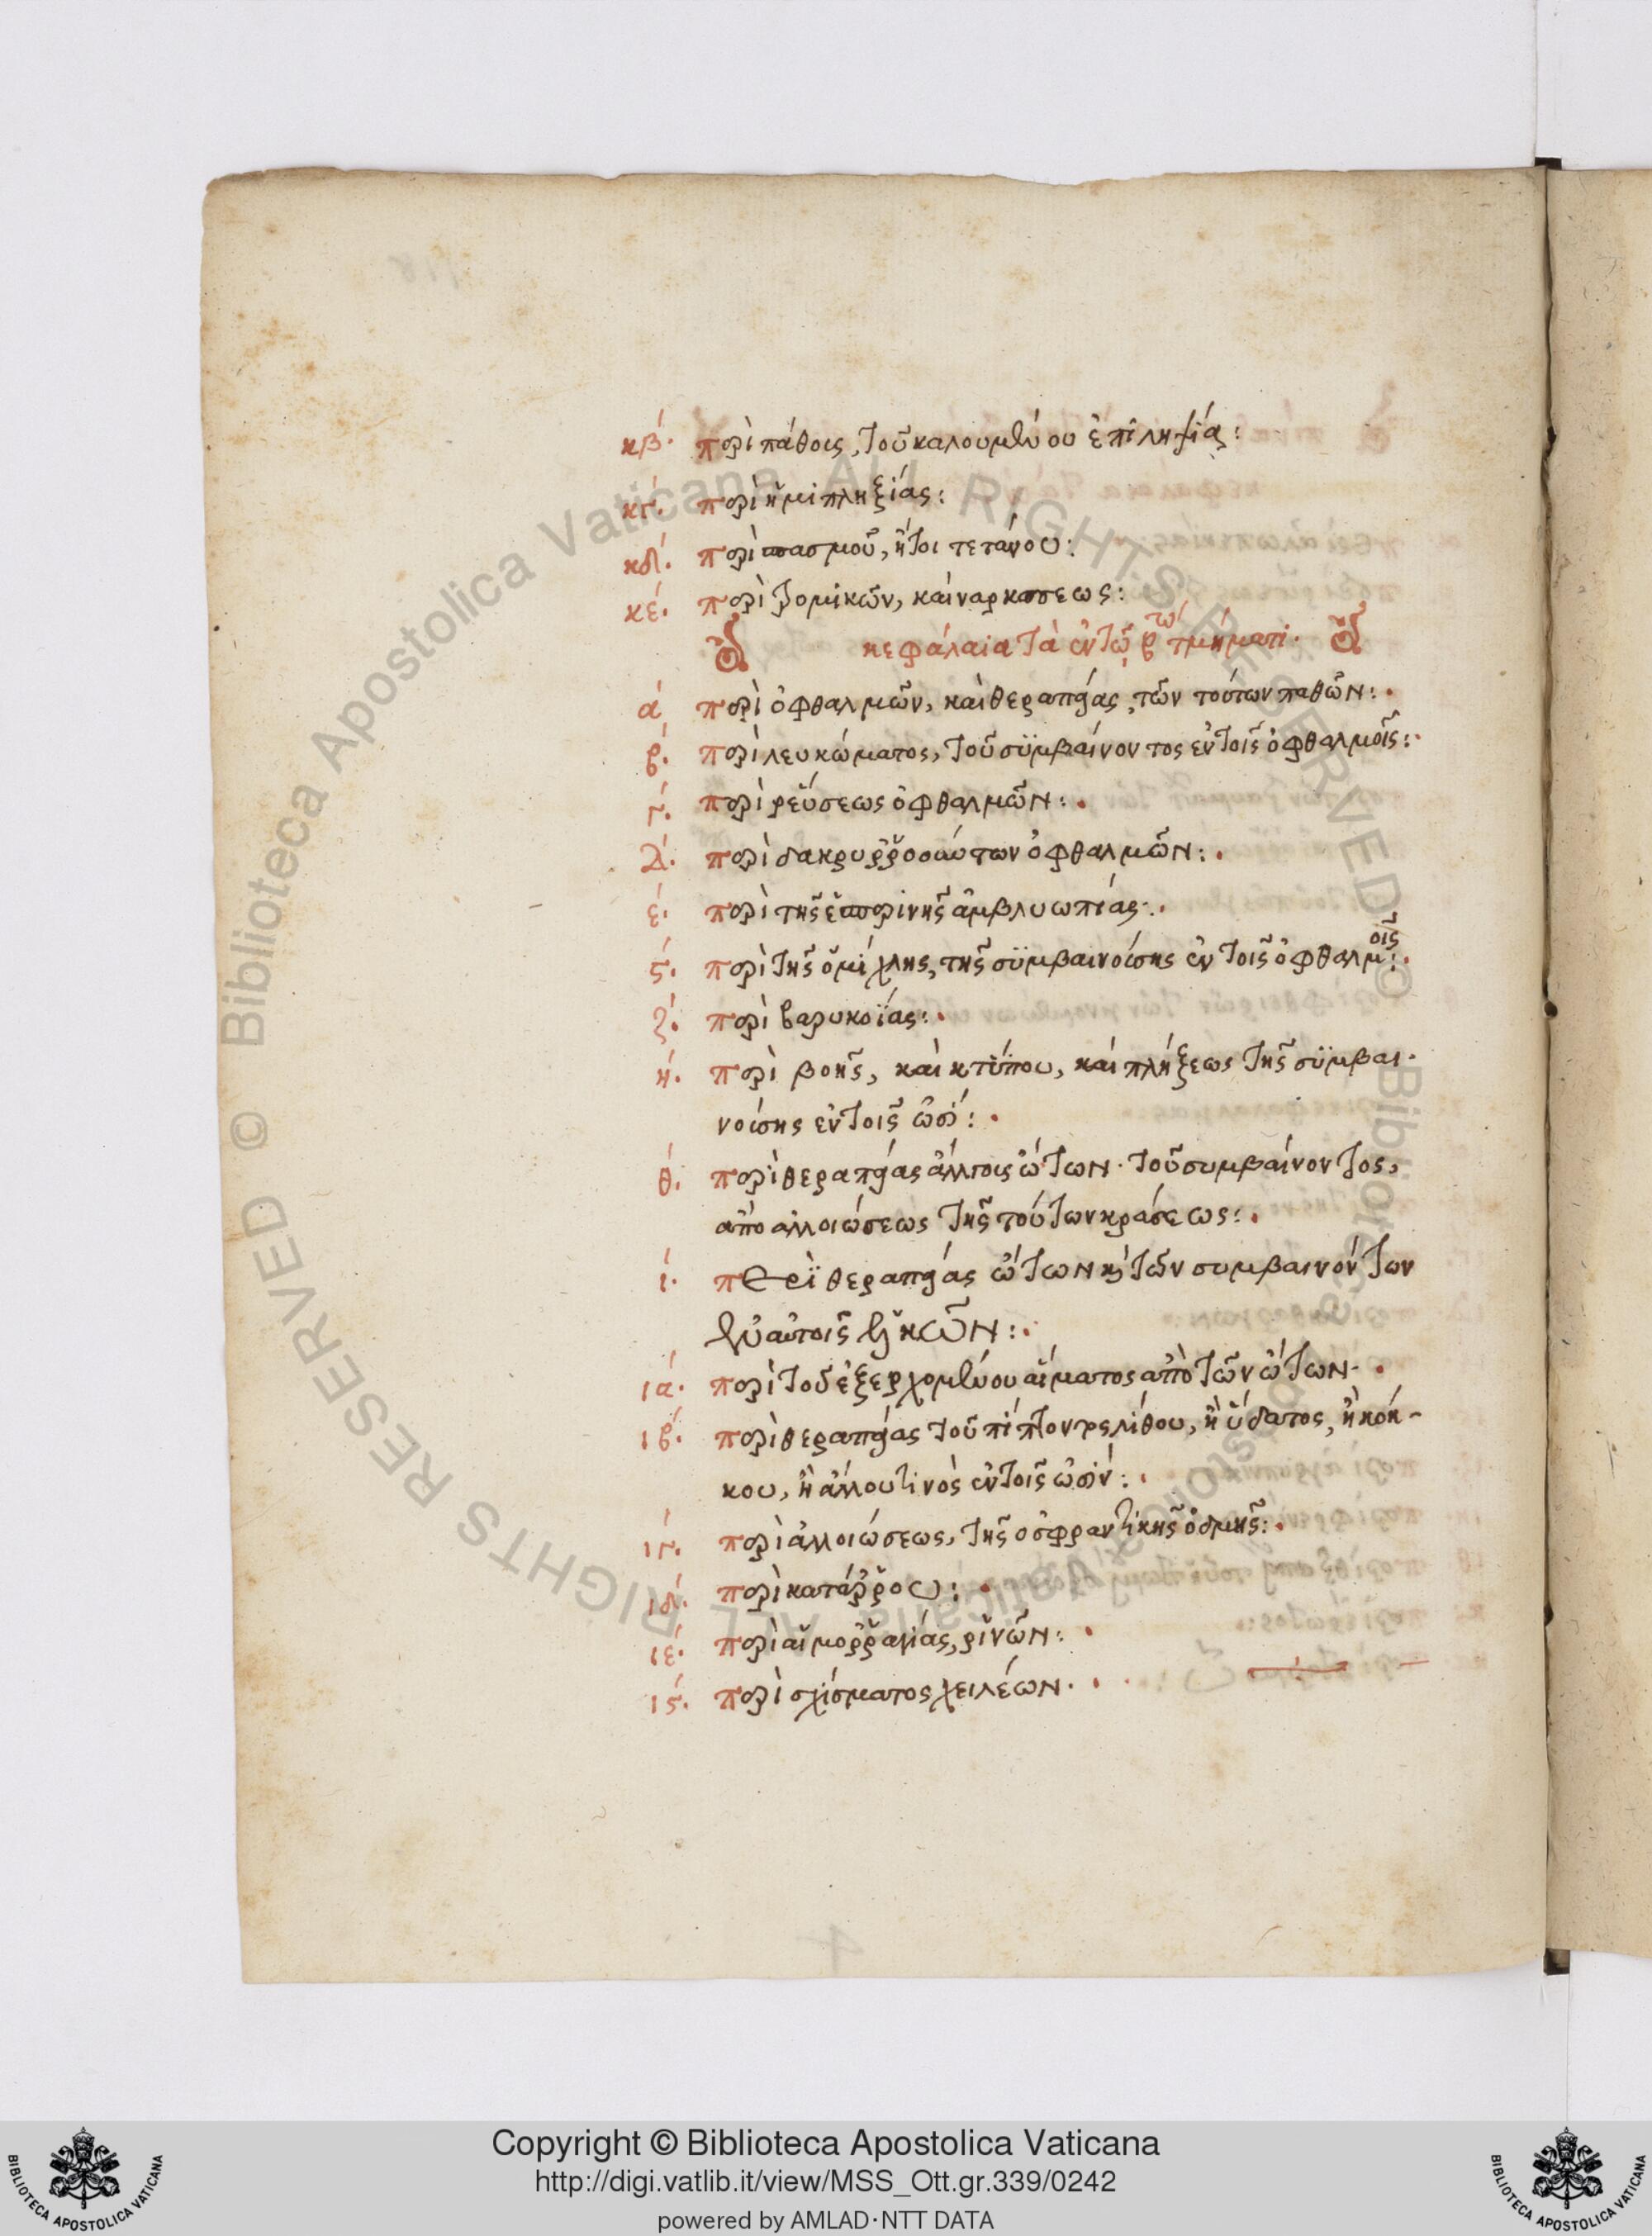 κβ΄. περὶ πάθους, τοῦ καλουμένου ἐπιληψίας:
κγ΄. περὶ ἡμιπληξίας:
κδ΄. περὶ σπασμοῦ, ἤτοι τετάνου:
κε΄. περὶ τρομικῶν, καὶ ναρκώσεως:
κεφάλαια τὰ ἐν τῷ βτω΄ τμήματι.
α΄ περὶ ὀφθαλμῶν, καὶ θεραπείας, τῶν τούτων παθῶν:.
β΄. περὶ λευκώματος, τοῦ συμβαίνοντος ἐν τοῖς ὀφθαλμοῖς:.
γ΄. περὶ ῥεύσεως ὀφθαλμῶν:.
δ΄. περὶ δακρυῤῥοούντων ὀφθαλμῶν:.
ε΄. περὶ τῆς ἑσπερινῆς ἀμβλυωπίας:.
ς΄. περὶ τῆς ὁμίχλης, τῆς συμβαινούσης ἐν τοῖς ὀφθαλμοῖς:.
ζ΄. περὶ βαρυκοΐας:.
η΄. περὶ βοῆς, καὶ κτύπου, καὶ πλήξεως τῆς συμβαι-
νούσης ἐν τοῖς ὠσί:.
θ΄. περὶ θεραπείας ἄλγους ὤτων. τοῦ συμβαίνοντος,
ἀπὸ ἀλλοιώσεως τῆς τούτων κράσεως:.
ι΄. περὶ θεραπείας ὤτων καὶ τῶν συμβαινόντων
ἐν αὐτοῖς ἑλκῶν:.
ια΄. περὶ τοῦ ἐξερχομένου αἵματος ἀπὸ τῶν ὤτων.
ιβ΄. περὶ θεραπείας τοῦ πίπτοντος λίθου, ἢ ὕδατος, ἢ κόκ-
κου, ἢ ἄλλου τινὸς ἐν τοῖς ὠσίν:.
ιγ΄. περὶ ἀλλοιώσεως, τῆς ὀσφραντικῆς ὀδμῆς:.
ιδ΄. περὶ κατάῤῥου:.
ιε΄. περὶ αἱμοῤῥαγίας, ῥινῶν:.
ις΄. περὶ σχίσματος χειλέων..
Copyright © Biblioteca Apostolica Vaticana
http://digi.vatlib.it/view/MSS_Ott.gr.339/0242
powered by AMLAD·NTT DATA
BIBLIOTECA APOSTOLICA VATICANA
BIBLIOTECA APOSTOLICA VATICANA
© Biblioteca Apostolica Vaticana ALL RIGHTS RESERVED © Biblioteca Apostolica Vaticana ALL RIGHTS RESERVED